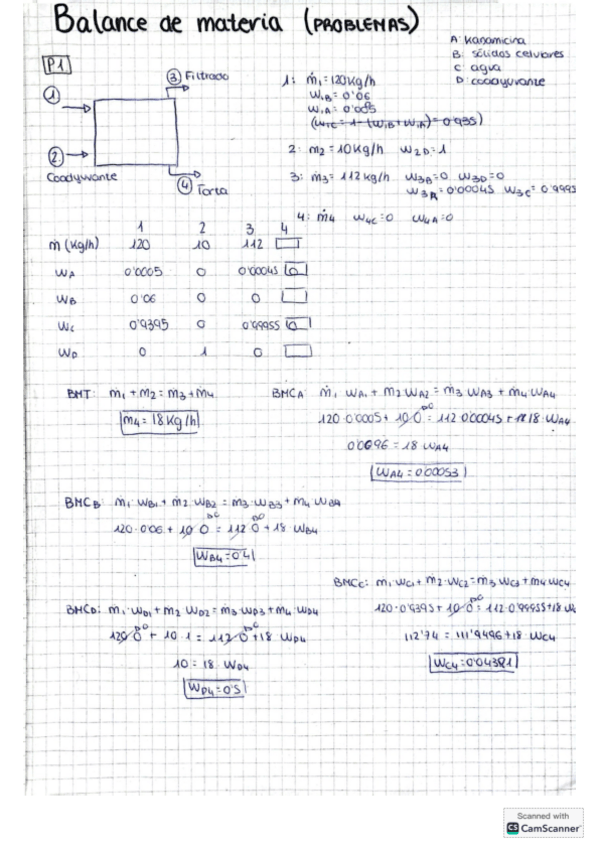 Balance de materia (PROBLEMAS)
A: Kanamicina
B: sólidos celulares
C: agua
D: coadyuvante
P1
③ Filtrado
①
②
Coadyuvante
④ Torta
1: ṁ₁ = 120 kg/h
W₁B = 0'06
W₁A = 0'005
(W₁C = 1 - (W₁B + W₁A) = 0'935)
2: m₂ = 10 kg/h W₂D = 1
3: ṁ₃ = 112 kg/h W₃B = 0 W₃D = 0
W₃A = 0'00045 W₃C = 0'9995
4: ṁ₄ W₄C = 0 W₄A = 0
1 2 3 4
ṁ (Kg/h) 120 10 112
WA 0'0005 0 0'00045 0
WB 0'06 0 0
WC 0'9395 0 0'99955 0
WD 0 1 0
BMT: ṁ₁ + m₂ = m₃ + ṁ₄
m₄ = 18 Kg/h
BMCA: ṁ₁ WA₁ + m₂ WA₂ = ṁ₃ WA₃ + ṁ₄ WA₄
120·0'0005 + 10·0 = 112·0'00045 + 18·WA4
0'0696 = 18 WA4
WA4 = 0'00053
BMCB: ṁ₁ WB₁ + ṁ₂·WB2 = ṁ₃·WB3 + m₄ WB4
120·0'06 + 10·0 = 112·0 + 18·WB4
WB4 = 0'4
BMCC: ṁ₁ WC1 + m₂·WC2 = m₃ WC3 + ṁ₄ WC4
120·0'9395 + 10·0 = 112·0'99955 + 18·W
112'74 = 111'9496 + 18·WC4
WC4 = 0'04391
BMCD: ṁ₁·WD1 + m₂ WD2 = ṁ₃·WD3 + m₄·WD4
120·0 + 10·1 = 112·0 + 18·WD4
10 = 18·WD4
WD4 = 0'5
Scanned with
CS CamScanner